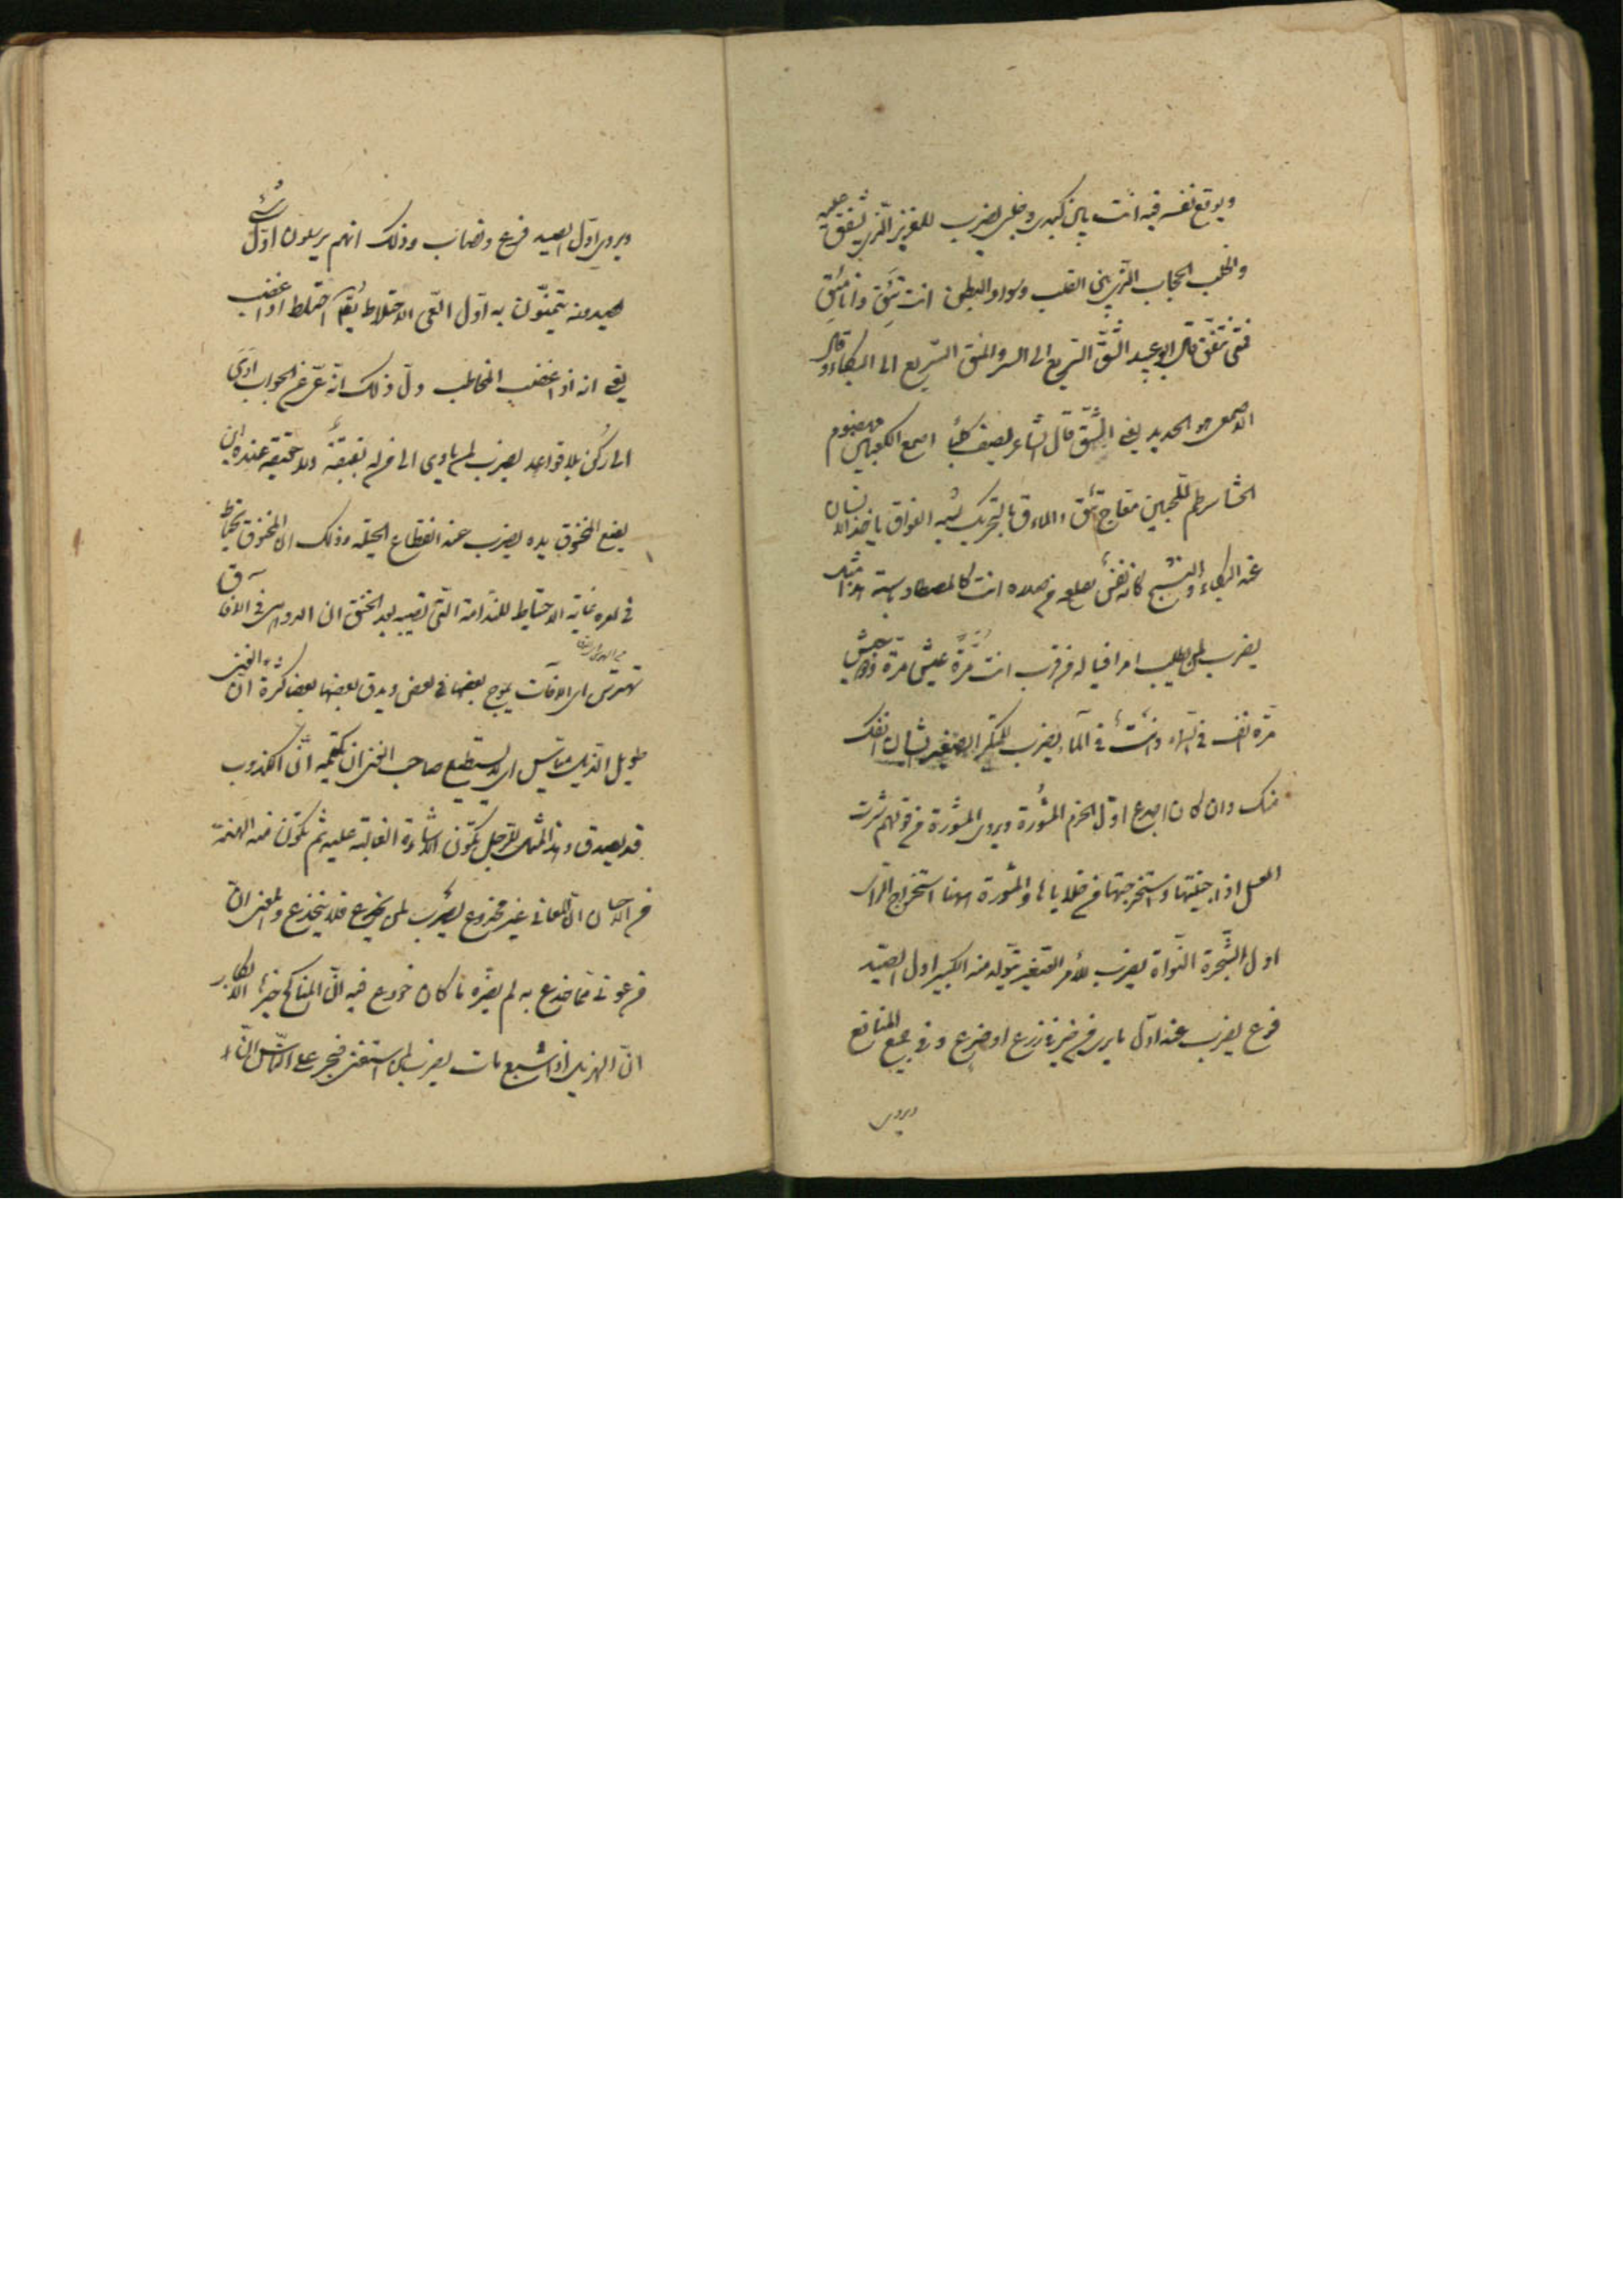 ويوقع نفسه فيه انت بين كبدى وخلبى يضرب للعزيز الذى يشفق عليه
والخلب الحجاب الذى بين القلب وسواد البطن انت تئق وانا مئق
فمتى نتفق قال ابو عبيد التئق السريع الى الشر والمئق السريع الى البكاء وقال
الاصمعى هو الحديد يعنى التئق قال الشاعر يصف كلبا اصمع الكعبين مهضوم
الحشا سرطم اللحيين معاج تئق والمأق بالتحريك شبه الفواق ياخذ الانسان
عند البكاء والنشيج كانه نفس يقلعه من صدره انت كالمصطاد باسته هذا مثل
يضرب لمن يطلب امرا فيناله من قرب انت مرة عيش ومرة جيش
مرة انف فى السماء واست فى الماء يضرب للمتكبر الصغير الشان انفك
منك وان كان اجدع اول الحزم المشورة ويروى المشورة من قولهم شرت
العسل اذا جنيتها واستخرجتها من خلاياها والمشورة هنا استخراج الراى
اول الشجرة النواة يضرب للأمر الصغير يتولد منه الكبير اول الصيد
فرع يضرب عند اول ما يرى من خير فى زرع او ضرع وفى جميع المنافع
ويروى
ويروى اول الصيد فرع ونصاب وذلك انهم يرسلون اول شئ
يصيدونه يتيمنون به اول العى الاختلاط يقال اختلط اذا غضب
يعنى انه اذا غضب المخاطب دل ذلك انه عى عن الجواب اوى
الى ركن بلا قواعد يضرب لمن ياوى الى من له بقبقة ولا حقيقة عنده اين
يضع المخنوق يده يضرب عند انقطاع الحيلة وذلك ان المخنوق يحتاط
فى امره غاية الاحتياط للندامة التى تصيبه بعد الخنق ان الدواهى فى الآفاق
تهترس اى الآفات يموج بعضها فى بعض ويدق بعضها بعضا كثرة ان الغنى
طويل الذيل مياس اى لا يستطيع صاحب الغنى ان يكتمه ان الكذوب
قد يصدق وهذا المثل للرجل يكون الاساءة الغالبة عليه ثم تكون منه الهنة
من الاحسان ان المعافى غير مخدوع يضرب لمن يخدع فلا ينخدع والمعنى ان
من عوفى مما خدع به لم يضره ما كان خودع فيه ان المناكح خيرها الابكار
ان الهزيل اذا شبع مات يضرب لمن استغنى فتجبر على الناس